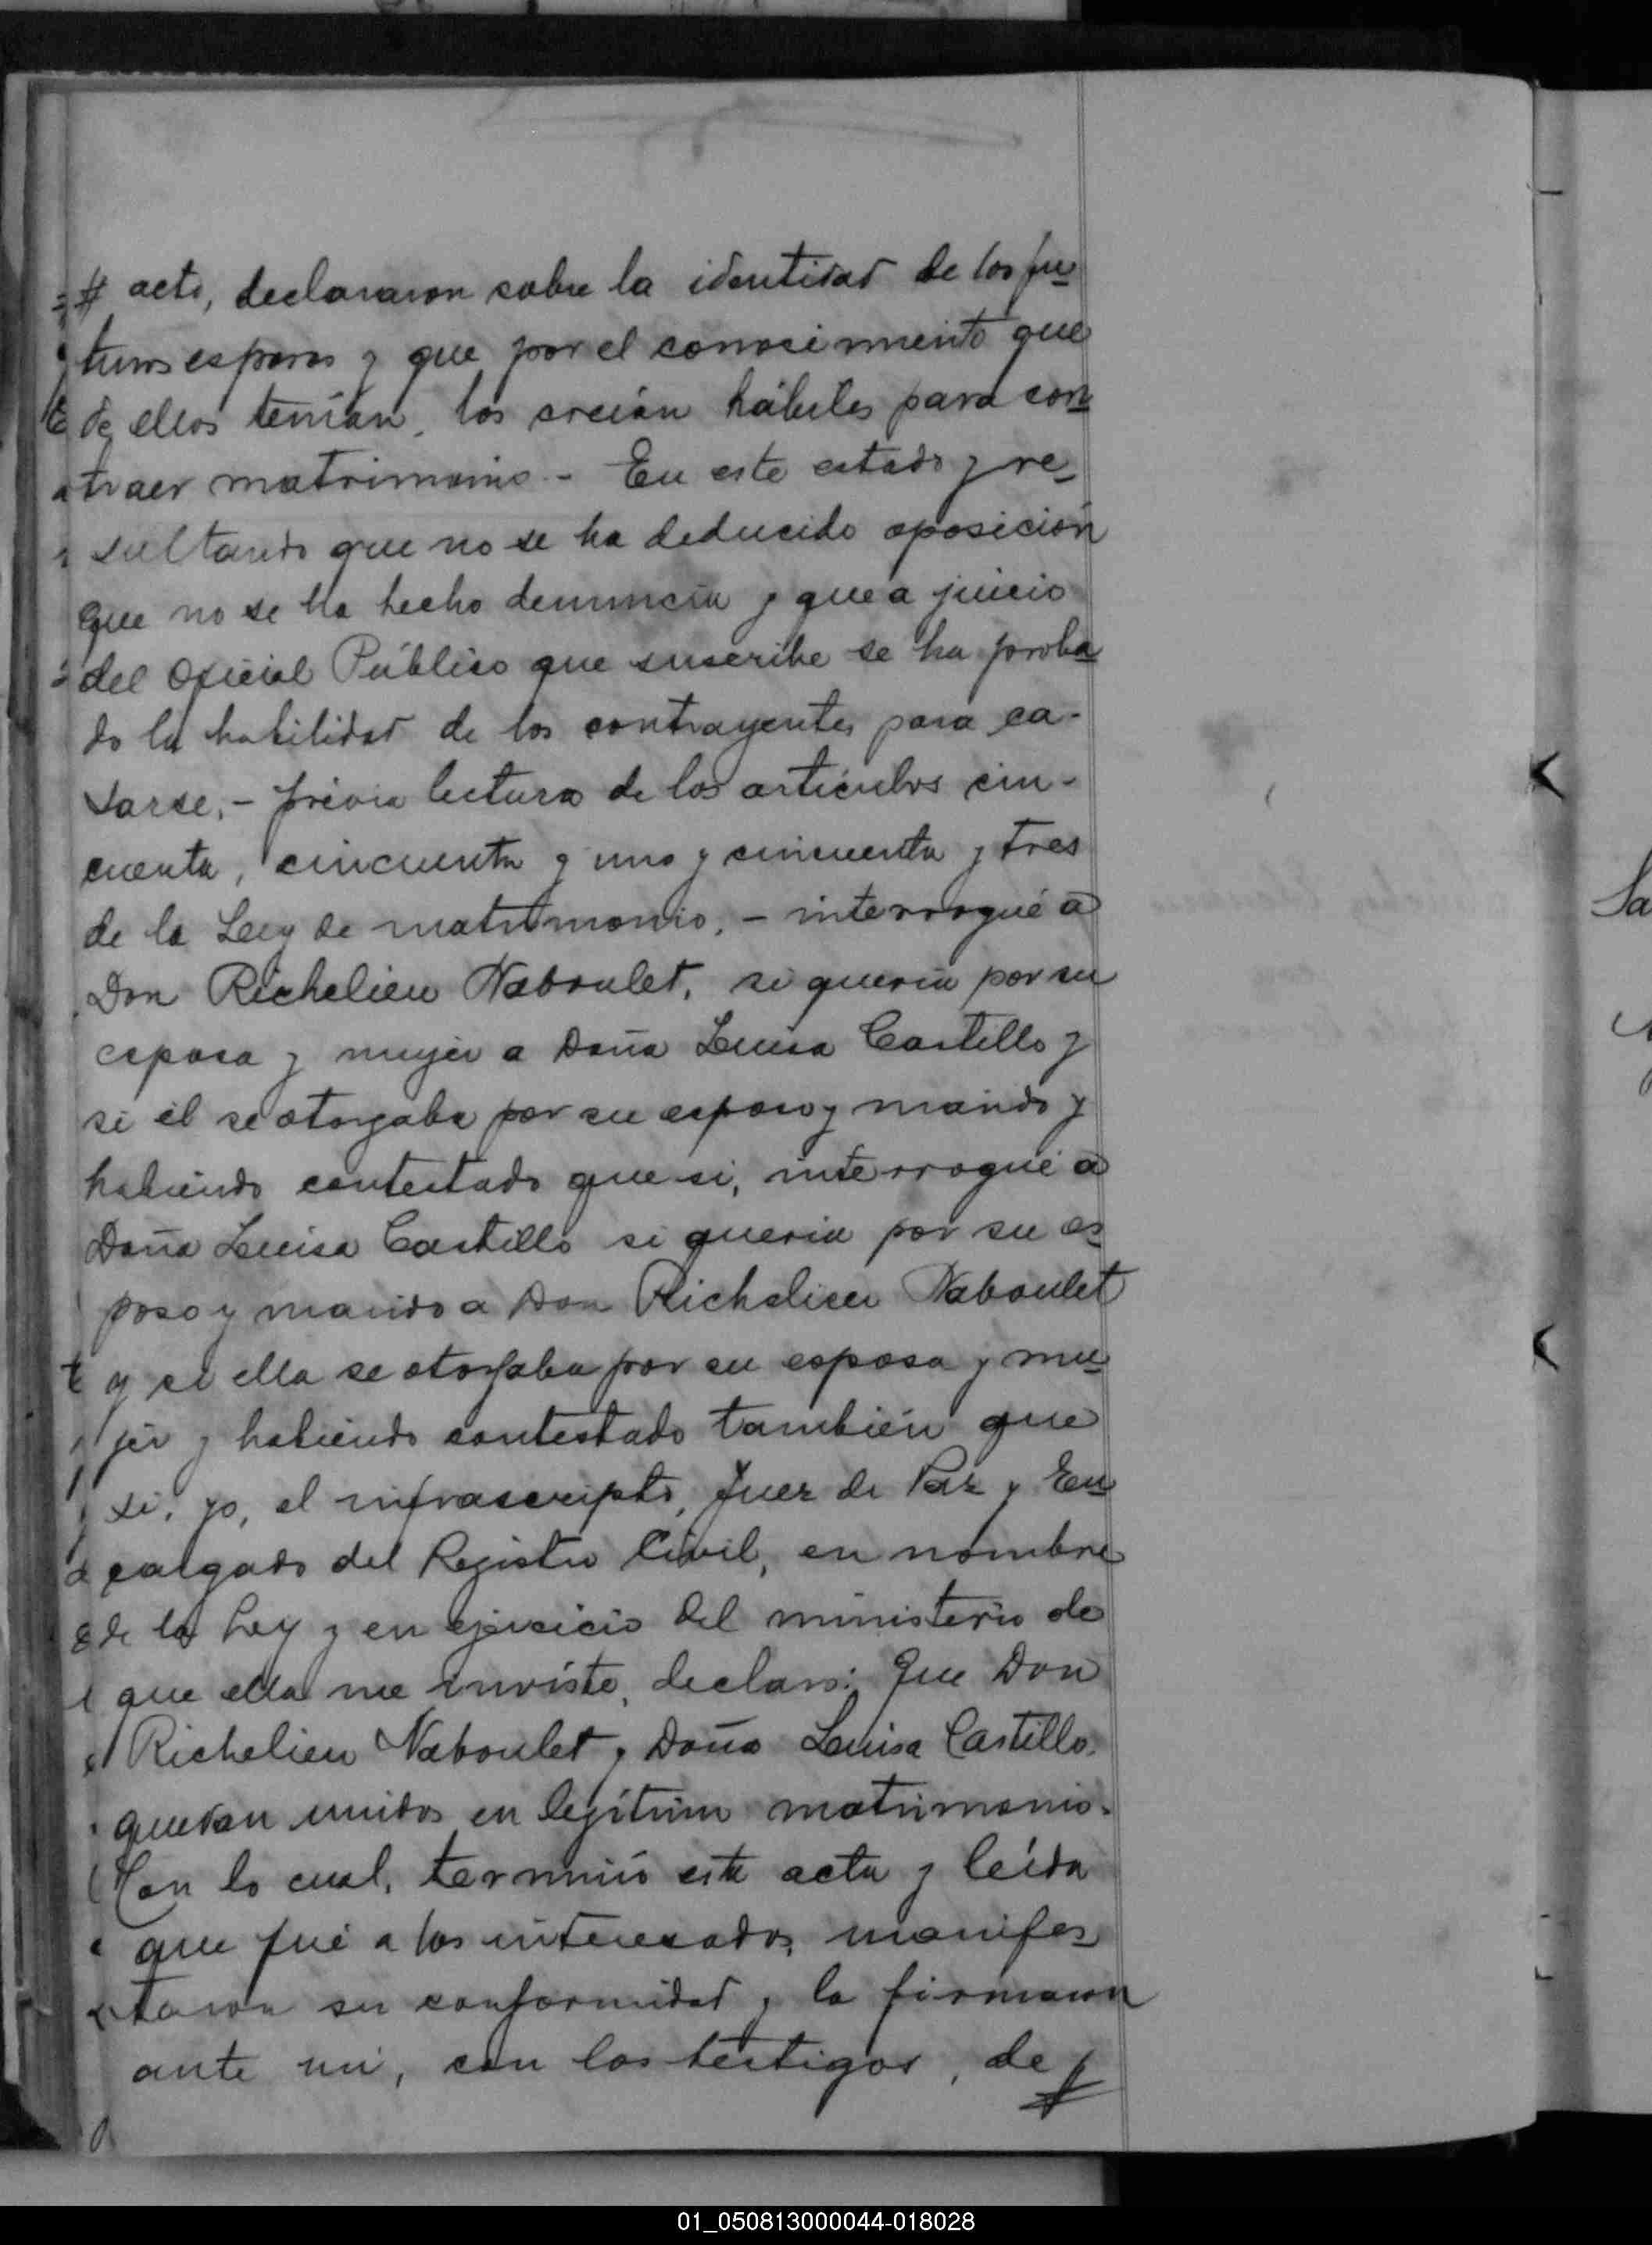 # acto, declararon sobre la identidad de los fu
turos esposos y que por el conosimiento que
de ellos tenían, los creían hábiles para con
traer matrimonio.- En este estado y re
sultando que no se ha deducido oposición
que no se ha hecho denuncia y que a juicio
del Oficial Público que suscribe se ha proba
do la habilidad de los contrayentes para ca-
sarse,- previa lectura de los artículos cin-
cuenta, cincuenta y uno y cincuenta y tres
de la Ley de matrimonio,- interrogué a
Don Richelieu Naboulet, si quería por su
esposa y mujer a Doña Luisa Castillo y
si él se otorgaba por su esposo y marido y
habiendo contestado que si, interrogué a
Doña Luisa Castillo si quería por su es
poso y marido a Don Richelieu Naboulet
y si ella se otorgaba por su esposa y mu
jer y habiendo contestado también que
si, yo, el infrascripto, Juez de Paz y En
cargado del Registro Civil, en nombre
de la Ley y en ejercicio del ministerio de
que ella me inviste, declaro: Que Don
Richelieu Naboulet y Doña Luisa Castillo,
quedan unidos en legítimo matrimonio.
Con lo cual, terminó esta acta y leída
que fué a los interesados, manifes
taron su conformidad y la firmaron
ante mí, con los testigos, de #
Sa
01_050813000044-018028